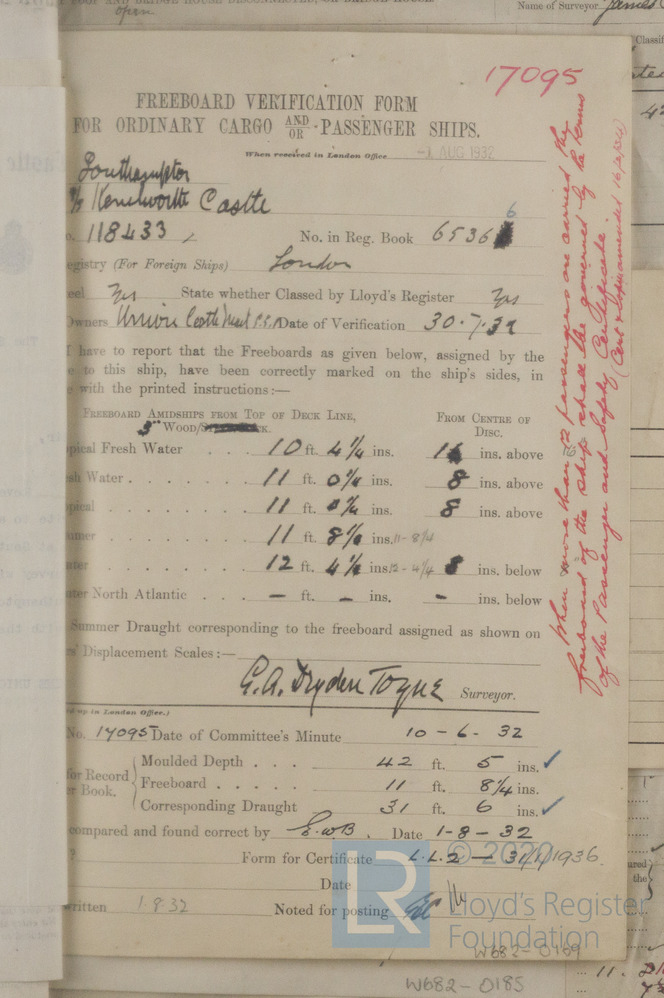 open
Name of Surveyor James
17095
FREEBOARD VERIFICATION FORM
FOR ORDINARY CARGO AND/OR PASSENGER SHIPS.
When received in London Office 1 AUG 1932
Southampton
Kenilworth Castle
118433
No. in Reg. Book 6536 6
egistry (For Foreign Ships) London
eel Yes State whether Classed by Lloyd's Register Yes
Owners Union Castle Mail S.S. Date of Verification 30.7.32
I have to report that the Freeboards as given below, assigned by the
e to this ship, have been correctly marked on the ship's sides, in
e with the printed instructions:—
FREEBOARD AMIDSHIPS FROM TOP OF DECK LINE, FROM CENTRE OF
3" WOOD/ K. DISC.
opical Fresh Water 10 ft. 4 1/4 ins. 16 ins. above
sh Water 11 ft. 0 1/4 ins. 8 ins. above
opical 11 ft. 0 1/4 ins. 8 ins. above
mmer 11 ft. 8 1/4 ins. 11-8 1/4
nter 12 ft. 4 1/4 ins. 12-4 1/4 8 ins. below
nter North Atlantic – ft. – ins. – ins. below
Summer Draught corresponding to the freeboard assigned as shown on
rs' Displacement Scales:—
G.A. Dryden Toyne Surveyor.
d up in London Office.)
No. 17095 Date of Committee's Minute 10-6-32
for Record
er Book.
Moulded Depth 42 ft. 5 ins.
Freeboard 11 ft. 8 1/4 ins.
Corresponding Draught 31 ft. 6 ins.
compared and found correct by E.W.B. Date 1-8-32
? Form for Certificate L.L.2 – 31/1/1936
Date
written 1.8.32 Noted for posting
When more than 12 passengers are carried the
freeboard of the ship shall be governed by the terms
of the Passenger and Safety Certificate.
LR
© 2020
Lloyd's Register
Foundation
W682-0169
W682-0185